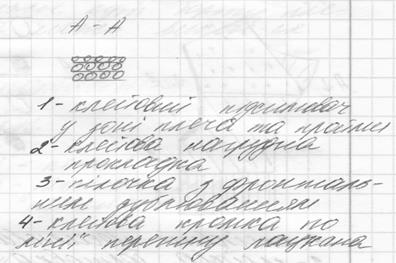 А - А
1 - клейовий підсилювач
у зоні плеча та пройми
2 - клейова нагрудна
прокладка
3 - пілочка з фронталь-
ним дублюванням
4 - клейова кромка по
лінії перегину лацкана